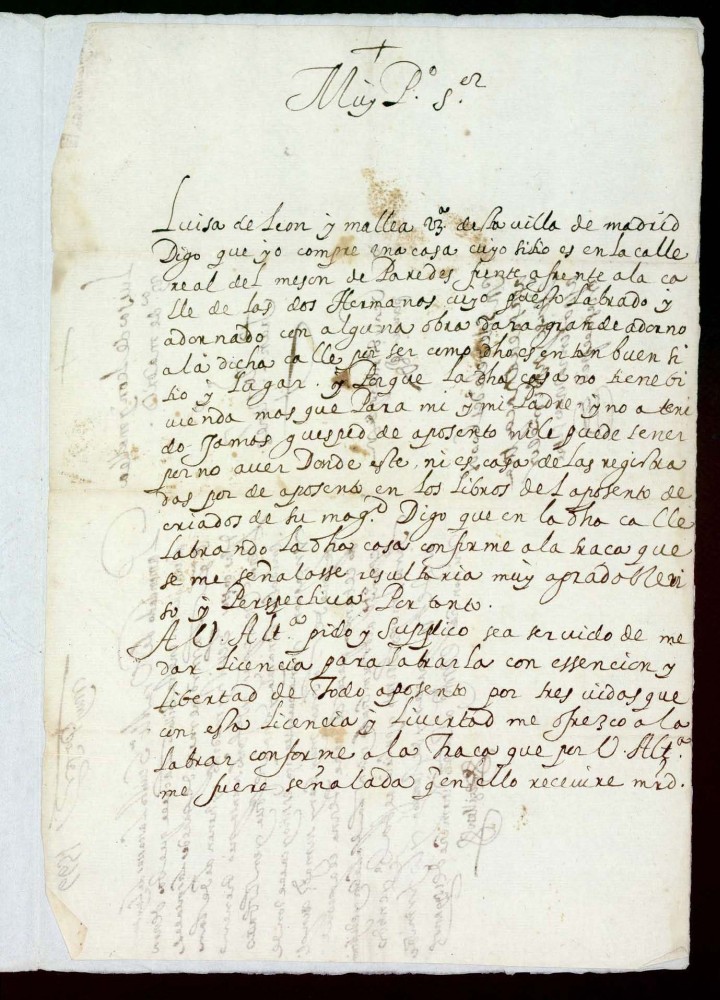 +
Muy P.º S.or
Luisa de Leon y mallea vª de sta villa de madrid
Digo que yo compre una casa cuyo sitio es en la calle
real del meson de Paredes frente a frente a la ca
lle de los dos Hermanos cuyo puesto labrado y
adornado con alguna obra dara grande adorno
a la dicha calle por ser como dho es en tan buen si
tio y lugar. y Porque la dha casa no tiene bi
vienda mas que Para mi y mi Padre y no a teni
do Jamas guesped de aposento ni le puede tener
por no aver Donde este, ni es casa de las registra
das por de aposento en los libros del aposento de
criados de su mag.d Digo que en la dha calle
labrando la dha casa conforme a la traca que
se me señalasse resultaria muy agradable vi
so y Perspectiva Por tanto.
A V. Alt.ª pido y Supplico sea servido de me
dar licencia para labrarla con essencion y
libertad de Todo aposento por tres vidas que
con essa licencia y livertad me ofrezco a la
labrar conforme a la Traca que por V. Alt.ª
me fuere señalada q en ello recevire mrd.